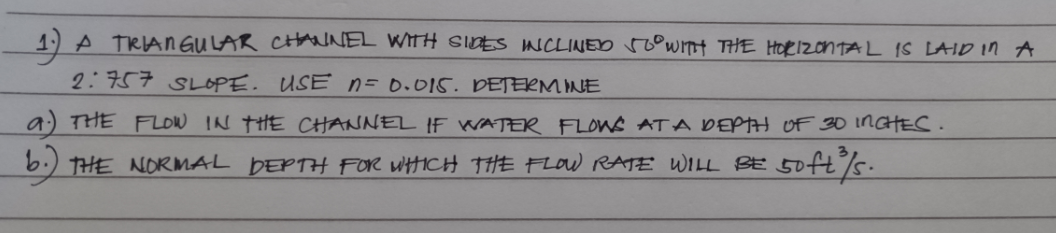 1.) A TRIANGULAR CHANNEL WITH SIDES INCLINED 50° WITH THE HORIZONTAL IS LAID IN A
2:757 SLOPE. USE n = 0.015. DETERMINE
a.) THE FLOW IN THE CHANNEL IF WATER FLOWS AT A DEPTH OF 30 INCHES.
b.) THE NORMAL DEPTH FOR WHICH THE FLOW RATE WILL BE 50 ft³/s.